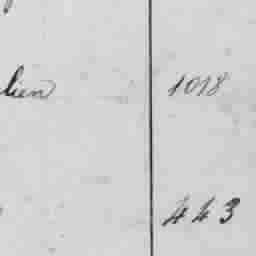 lien 1018
443